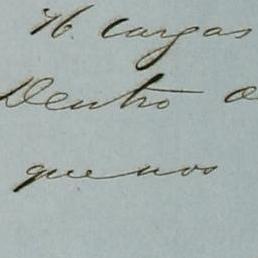 H. Cargas
Dentro o
que nos